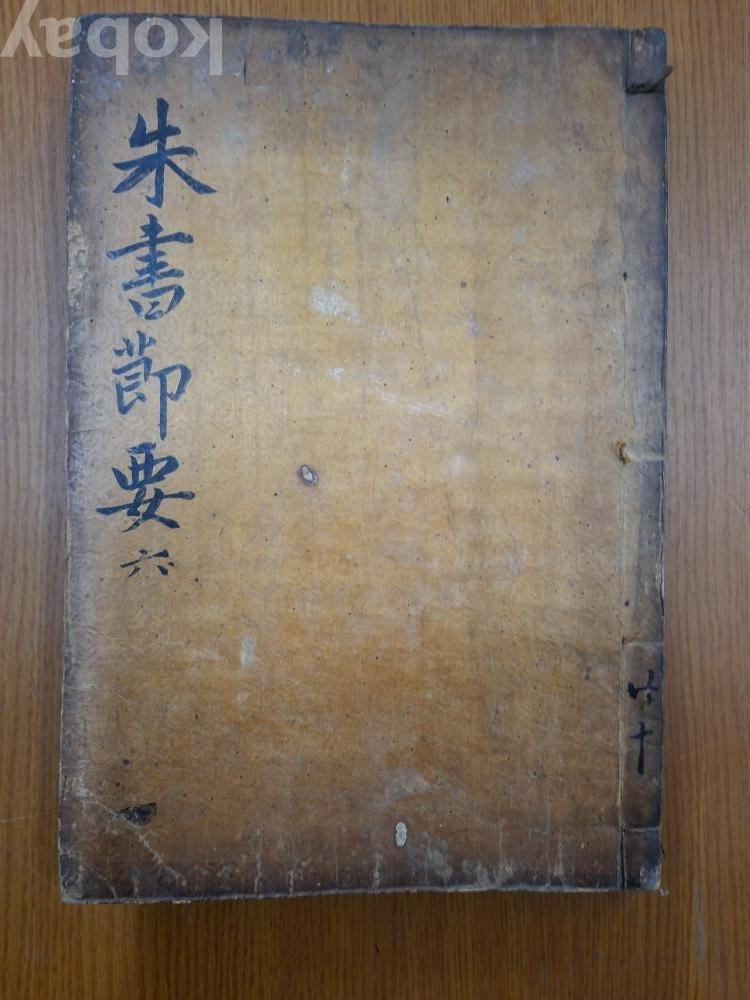 kobay
朱書節要 六
共十